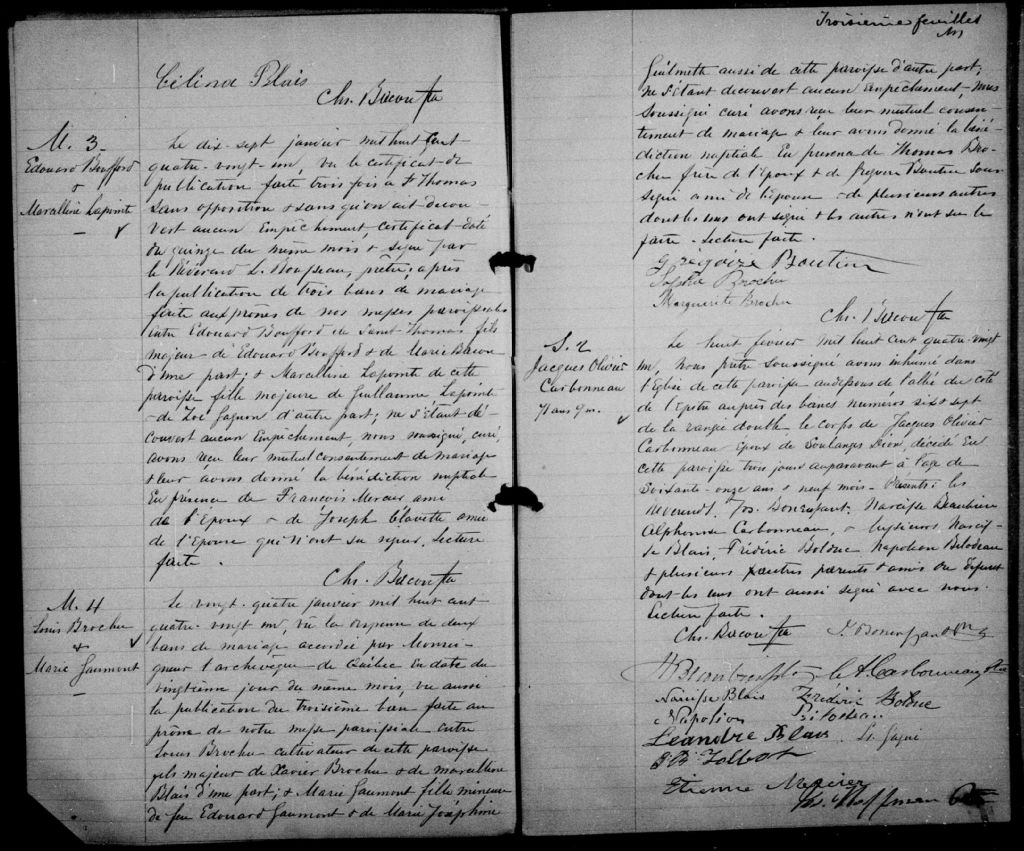 Célina Blais
Chs. Bacon Ptre
M. 3
Edouard Boufford
+
Marcelline Lapointe
Le dix-sept janvier mil huit cent
quatre-vingt un, vu le certificat de
publication faite trois fois à St Thomas
sans opposition & sans qu'on ait décou-
vert aucun Empêchement, certificat daté
du quinze du même mois & signé par
le Révérend L. Rousseau, prêtre; après
la publication de trois bans de mariage
faite aux prônes de nos messes paroissiales
entre Edouard Boufford de Saint Thomas fils
majeur d'Edouard Boufford & de Marie Bacon
d'une part; & Marcelline Lapointe de cette
paroisse fille majeure de Guillaume Lapointe
& de Zoé Gagnon d'autre part; ne s'étant dé-
couvert aucun Empêchement, nous soussigné, curé,
avons reçu leur mutuel consentement de mariage
& leur avons donné la bénédiction nuptiale
En présence de François Mercier ami
de l'Epoux & de Joseph Clavette ami
de l'Epouse qui n'ont su signer. Lecture
faite.
Chs. Bacon Ptre
M. 4
Louis Brochu
+
Marie Gaumont
Le vingt-quatre janvier mil huit cent
quatre-vingt un, vu la dispense de deux
bans de mariage accordée par Monsei-
gneur l'archevêque de Québec en date du
vingtième jour du même mois, vu aussi
la publication du troisième ban faite au
prône de notre messe paroissiale entre
Louis Brochu cultivateur de cette paroisse
fils majeur de Xavier Brochu & de Marcelline
Blais d'une part; & Marie Gaumont fille mineure
de feu Edouard Gaumont & de Marie Joséphine
Troisième feuillet
Guilmette aussi de cette paroisse d'autre part;
ne s'étant découvert aucun Empêchement, nous
soussigné curé avons reçu leur mutuel consen-
tement de mariage & leur avons donné la béné-
diction nuptiale En présence de Thomas Bro-
chu frère de l'Epoux & de Grégoire Boutin sous-
signé ami de l'épouse & de plusieurs autres
dont les uns ont signé & les autres n'ont su le
faire. Lecture faite.
Gregoire Boutin
Sophie Brochu
Marguerite Brochu
Chs. Bacon Ptre
S. 2
Jacques Olivier
Carbonneau
71 ans 9 m.
Le huit février mil huit cent quatre-vingt
un, Nous prêtre soussigné avons inhumé dans
l'Eglise de cette paroisse au dessous de l'allée du côté
de l'Epitre auprès des bancs numéros six & sept
de la rangée double le corps de Jacques Olivier
Carbonneau Epoux de Soulanges Dion, décédé En
cette paroisse trois jours auparavant à l'age de
soixante-onze ans & neuf mois. Présents: les
Révérends Jos. Bonenfant, Narcisse Beaubien
Alphonse Carbonneau, & Messieurs Narcis-
se Blais, Frédéric Bolduc Napoléon Bilodeau
& plusieurs autres parents & amis du défunt
dont les uns ont aussi signé avec nous.
Lecture faite.
Chs. Bacon Ptre J. Bonenfant Ptre
A Carbonneau Ptre
Narcisse Blais Frédéric Bolduc
Napoléon Bilodeau
Leandre Blais
Talbot
Etienne Mercier